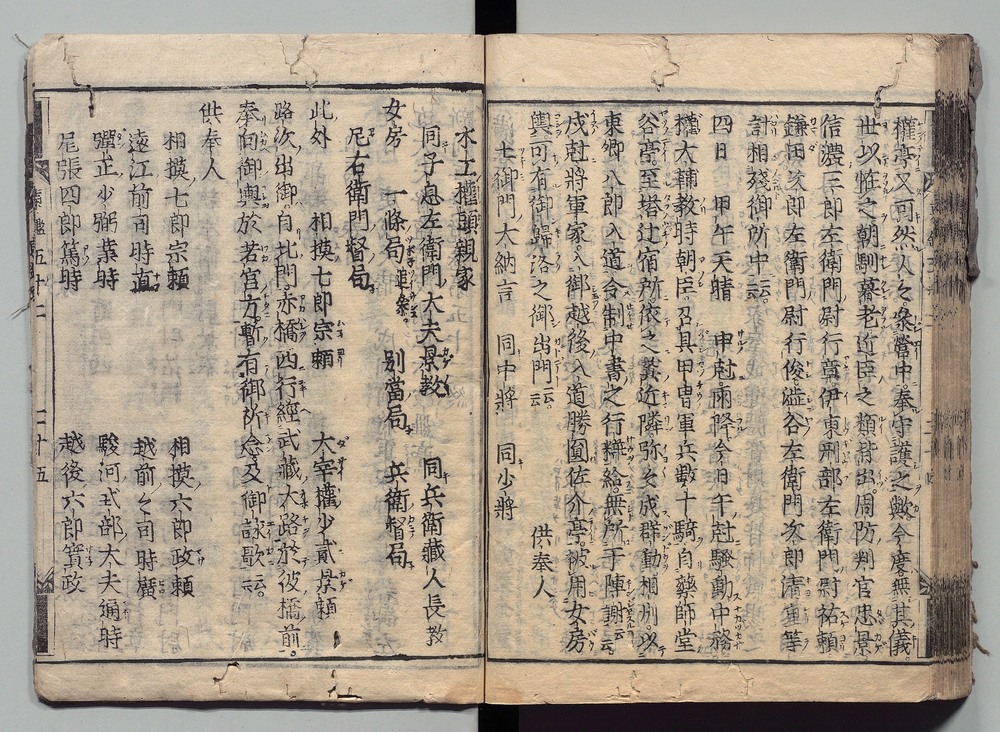 權亭又可然人々參營中奉守護之歟今度無其儀
世以恠之朝馴暮老近臣之類皆出周防判官忠景
信濃三郎左衞門尉行章伊東刑部左衞門尉祐頼
鎌田次郎左衞門尉行俊澁谷左衞門次郎清重等
計相殘御所中云云
四日 甲午天晴 申尅雨降今日午尅騷動中務
權大輔教時朝臣召具甲冑軍兵數十騎自藥師堂
谷亭至塔辻宿所依之其近隣弥以成群動相州以
東郷八郎入道令制中書之行粧給無所于陣謝云云
戌尅將軍家入御越後入道勝圓佐介亭被用女房
輿可有御歸洛之御出門云云
供奉人
土御門大納言 同中將 同少將
水工權頭親家
同子息左衞門大夫景教 同兵衞藏人長教
女房 一條局追參 別當局 兵衞督局
尼右衞門督局
此外 相摸七郎宗頼 太宰權少貳景頼
路次出御自北門赤橋西行經武藏大路於彼橋前
奉向御輿於若宮方暫有御祈念及御詠歌云云
供奉人
相摸七郎宗頼 相摸六郎政頼
遠江前司時直 越前々司時廣
彈正少弼業時 駿河式部大夫通時
尾張四郎篤時 越後六郎實政
五十二 二十五